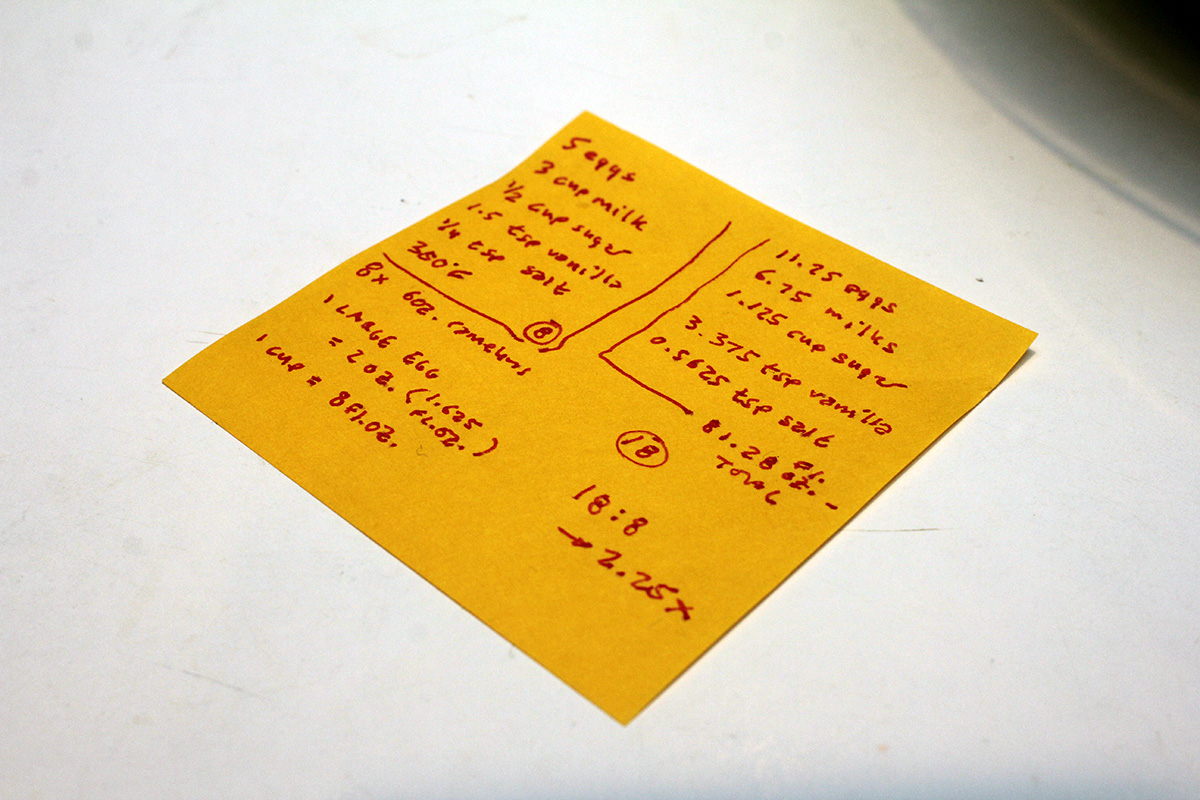 5 eggs
3 cup milk
1/2 cup sugar
1.5 tsp vanilla
1/4 tsp salt
350°F
8
8x 6oz. ramekins
1 LARGE EGG
= 2 oz. (1.625
FL.OZ.)
1 CUP =
8 Fl.OZ.
11.25 eggs
6.75 milks
1.125 cup sugar
3.375 tsp vanilla
0.5625 tsp salt
18
81.28 Fl.
oz.
TOTAL
18:8
→ 2.25x